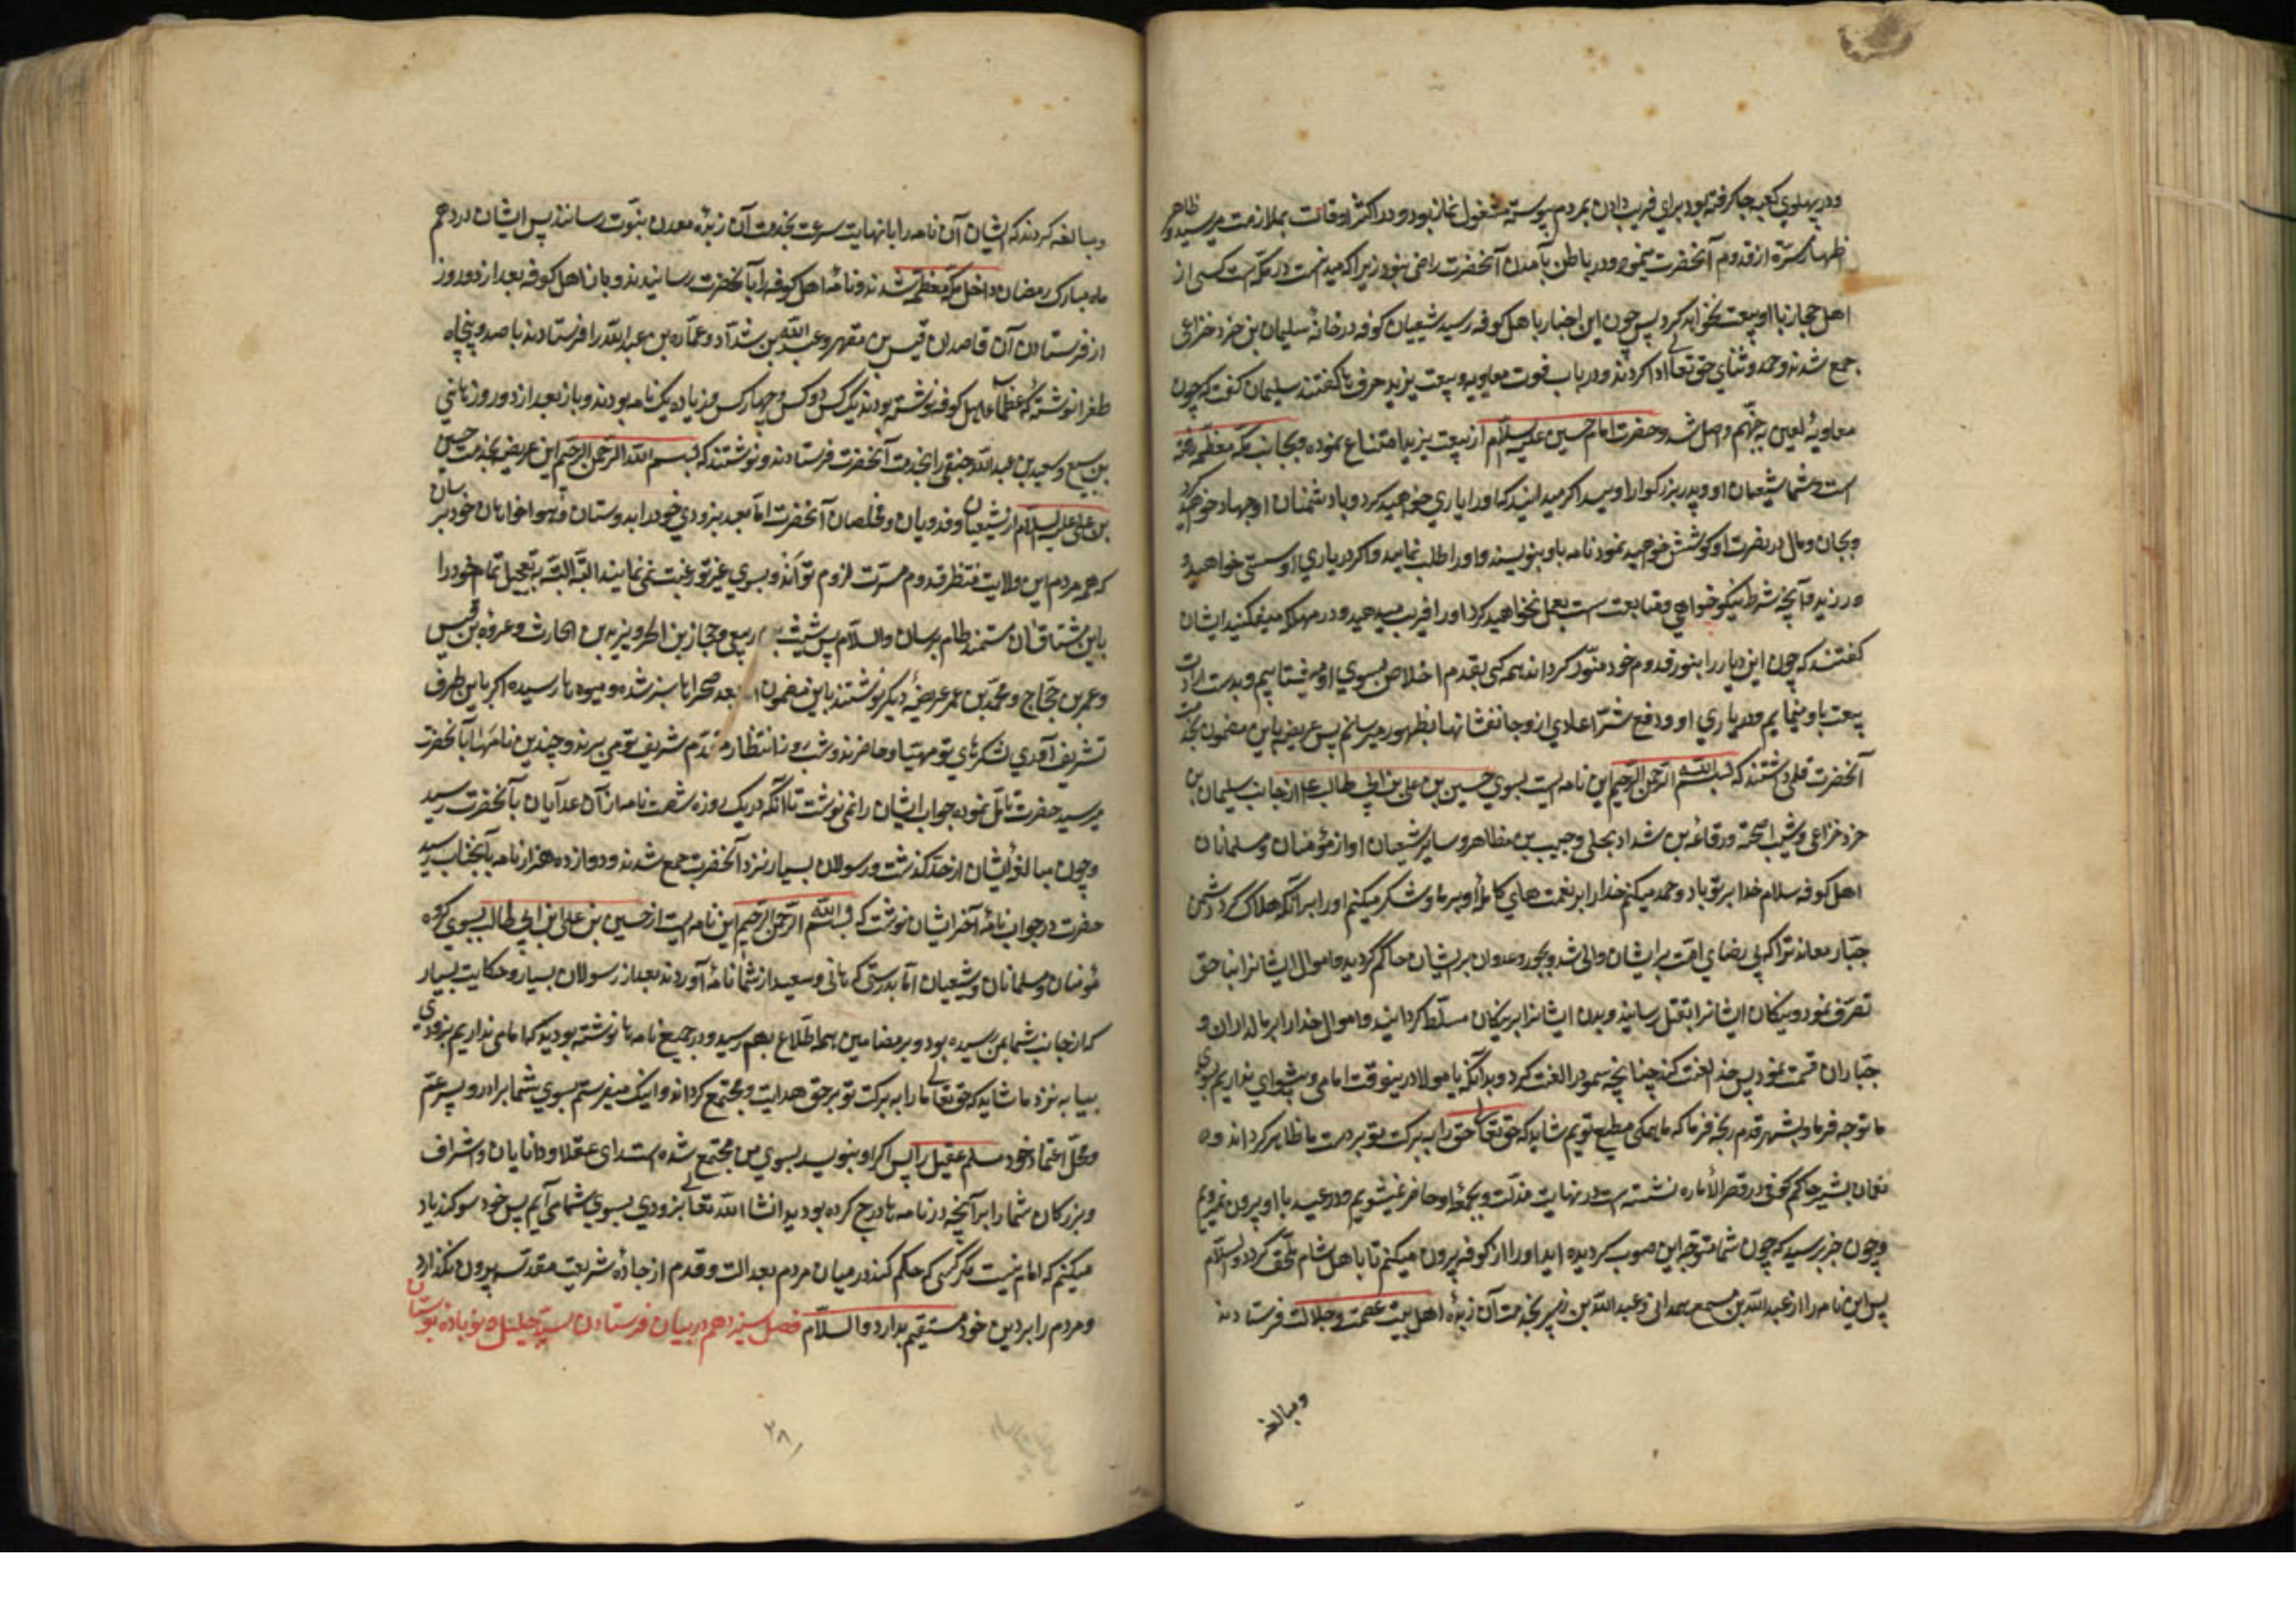 ودر پهلوي کعبه جا کرفته بود براي فریب دادن بمردم پیوسته مشغول نماز بود ودر اکثر اوقات بملازمت میرسید وظاهر
اظهار مسرّة از قدوم آنحضرت مینمود ودر باطن بآمدن آنحضرت راضی نبود زیرا که میدانست در مکّه است کسی از
اهل حجاز با او بیعت نخواهد کرد پس چون این اخبار باهل کوفه رسید شیعیان کوفه در خانهٔ سلیمان بن خرد خزاعی
جمع شدند وحمد وثنای حق تعالی ادا کردند ودر باب فوت معاویه وبیعت یزید حرفها کفتند سلیمان کفت که چون
معاویهٔ لعین به جهنّم واصل شد وحضرت امام حسین علیه السلام از بیعت یزید امتناع نموده وبجانب مکّه معظّمه رفته
است وشما شیعیان او وپدر بزرکوار اوسید اکر میدانید که اورا یاري خواهید کرد وبا دشمنان او جهاد خواهید کرد
وبجان ومال در نصرت او کوشش خواهید نمود نامه باو بنویسید واورا طلب نمایید واکر در یاري او سستی خواهید
ورزید وآنچه شرط نیکو خواهي ومتابعت است بعمل نخواهید کرد اورا فریب میدهید ودر مهلکه میفکنید ایشان
کفتند که چون این دیار را بنور قدوم خود منوّر کرداند همه کی بقدم اخلاص بسوي او میشتابیم وبدست ارادت
بیعت باو مینمایم ودر یاري او ودفع شرّ اعادي از وجانفشانیها بظهور میرسانم پس عریضه باین مضمون بخدمت
آنحضرت قلمی داشتند که بسم الله الرحمن الرحیم این نامه ایست بسوي حسین بن علي بن ابي طالب ع از جانب سلیمان بن
خرد خزاعی ومسیّب نجبة ورفاعه بن شداد بجلی وحبیب بن مظاهر وسایر شیعیان او از مؤمنان ومسلمانان
اهل کوفه سلام خدا بر تو باد وحمد میکنم خدا را بر نعمت هاي کاملهٔ او بر ما وشکر میکنم اورا بر آنکه هلاک کرد دشمن
جبّار معاند ترا که بي رضاي امّت بر ایشان والي شد وبجور وعدوان بر ایشان حاکم کردید واموال ایشانرا بنا حق
تصرّف نمود ونیکان ایشانرا بقتل رسانید وبدان ایشانرا بر نیکان مسلّط کردانید واموال خدا را بر مالداران و
جبّاران قسمت نمود پس خدا لعنت کند چنانچه ثمود را لعنت کرد وبدانکه یا مولا درینوقت امامي وپیشواي نداریم بسوي
ما توجه فرما وبشهر قدم رنجه فرما که ما همکي مطیع توییم شاید که حق تعالی حق را به برکت تو بر دست ما ظاهر کرداند و
نعمان بشیر حاکم کوفه در قصر الاماره نشسته است در نهایت مذلّت وبجمعهٔ او حاضر نمیشویم ودر عید با او بیرون نمیرویم
وچون خبر برسید که چون شما متوجه این صوب کردیده اید اورا از کوفه بیرون میکنم تا باهل شام ملحق کردد والسلام
پس این نامه را از عبد الله بن مسمع همدانی وعبد الله بن زبیر بخدمت آن زبدهٔ اهل بیت عصمت وجلالت فرستادند
ومبالغه
ومبالغه کردند که ایشان آن نامه را با نهایت سرعت بخدمت آن زبدهٔ معدن نبوّت رسانند پس ایشان در دهم
ماه مبارک رمضان داخل مکّه معظّمه شدند ونامهٔ اهل کوفه را بآنحضرت رسانیدند وباز اهل کوفه بعد از دو روز
از فرستادن آن قاصدان قیس بن مقهر وعبد الله بن شدّاد وعمّاره بن عبد الله را فرستادند با صد وپنجاه
طغرا نوشته که عظماء اهل کوفه نوشته بودند یک کس ودو کس وچهار کس وزیاده یک نامه بودند وباز بعد از دو روز هاني
بن سبیع وسعید بن عبد الله حنفي را بخدمت آنحضرت فرستادند ونوشتند که بسم الله الرحمن الرحیم این عریضه بخدمت حسین
بن علي علیه السلام از شیعیان وفدویان ومخلصان آنحضرت امّا بعد بزودي خود را بدوستان وهواخواهان خود برسان
که همه مردم این ولایت منتظر قدوم مسرّت لزوم تواند وبسوي غیر تو رغبت نمی نمایند البتّه البتّه بتعجیل تمام خود را
باین مشتاقان مستمند طام برسان والسلام پس شیث بن ربعي وحجاز بن الحر ویزید بن الحارث وعروه بن قیس
وعمر بن حجّاج ومحمّد بن عمر عریضهٔ دیکر نوشتند باین مضمون امّا بعد صحرا ها سبز شده ومیوه ها رسیده اکر باین طرف
تشریف آوردي لشکرهاي تو مهیّا وحاضرند وشب وروز انتظار مقدم شریف تو می برند وچندین نامها بآنحضرت
میرسید حضرت تامّل نموده جواب ایشان را نمی نوشت تا آنکه در یک روزه ششصد نامه از آن غدّاران بآنحضرت رسید
وچون مبالغهٔ ایشان از حد کذشت ورسولان بسیار نزد آنحضرت جمع شدند ودوازده هزار نامه بآنجناب رسید
حضرت در جواب نامهٔ آخر ایشان نوشت که بسم الله الرحمن الرحیم این نامه ایست از حسین بن علي ابن ابي طالب بسوي کروه
مؤمنان ومسلمانان وشیعیان امّا بدرستی که هاني وسعید از شما نامهٔ آوردند بعد از رسولان بسیار وحکایت بسیار
که از جانب شما بمن رسیده بود وبر مضامین همه اطّلاع بهم رسید ودر جمیع نامه ها نوشته بودید که امامي نداریم بزودي
بیا به نزد ما شاید که حق تعالی ما را به برکت تو بر حق هدایت ومجتمع کرداند واینک میفرستم بسوي شما برادر وپسر عمّ
ومحلّ اعتماد خود مسلم عقیل را پس اکر او بنویسد بسوي من مجتمع شده است راي عقلا ودانایان واشراف
وبزرکان شما را بر آنچه در نامه ها درج کرده بودید انشاء الله تعالی بزودي بسوي شما می آیم پس خود سوکند یاد
میکنم که امام نیست مکر کسی که حکم کند در میان مردم بعدالت وقدم از جادهٔ شریعت مقدّسه بیرون نکذارد
ومردم را بر دین خود مستقیم بدارد والسلام فصل سیزدهم در بیان فرستادن سیّد جلیل ونو باده بوستان
۲۸